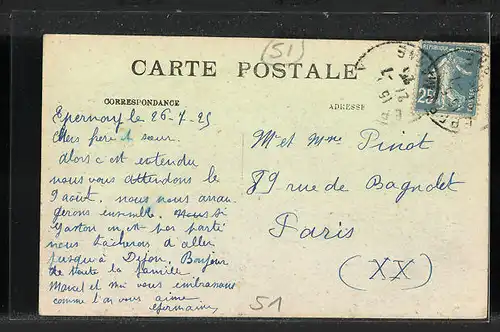 (51)
CARTE POSTALE
RÉPUBLIQUE FRANÇAISE
25
CORRESPONDANCE
ADRESSE
Epernay le 26-7-25
Chers frère et sœur
Alors c'est entendu
nous vous attendons le
9 août. nous nous arran
gerons ensemble. Aussi si
Gaston n'est pas parti
nous tâcherons d'aller
jusqu'à Dijon. Bonjour
de toute la famille.
Marcel et moi vous embrassons
comme l'on vous aime
Germaine
Mr et Mme Pinot
89 rue de Bagnolet
Paris
(XX)
51